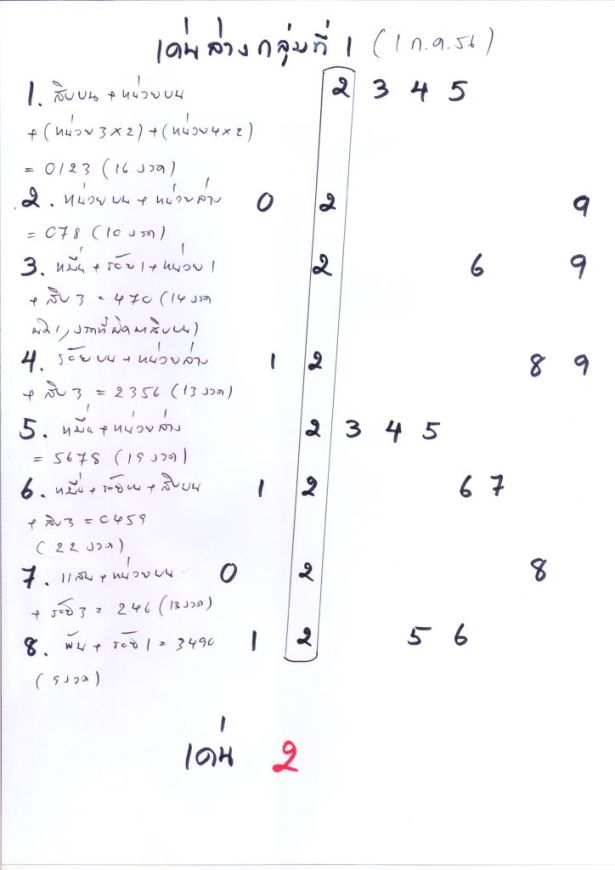 เด่นล่างกลุ่มที่ 1 (1 ก.ค.56)
1. สิบบน + หน่วยบน 2 3 4 5
+ (หน่วย3x2) + (หน่วย4x2)
= 0123 (16 งวด)
2. หน่วยบน + หน่วยล่าง 0 2 9
= 078 (10 งวด)
3. หมื่น + ร้อย1 + หน่วย1 2 6 9
+ สิบ3 = 470 (14 งวด
ผิด1, งวดที่ผิดมาสิบบน)
4. ร้อยบน + หน่วยล่าง 1 2 8 9
+ สิบ3 = 2356 (13 งวด)
5. หมื่น + หน่วยล่าง 2 3 4 5
= 5678 (19 งวด)
6. หมื่น + ร้อยบน + สิบบน 1 2 6 7
+ สิบ3 = 0459
(22 งวด)
7. แสน + หน่วยบน 0 2 8
+ ร้อย3 = 246 (13งวด)
8. พัน + ร้อย1 = 3490 1 2 5 6
(9งวด)
เด่น 2